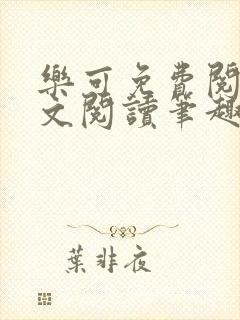 樂可免費閱
文閱讀筆趣
葉非夜